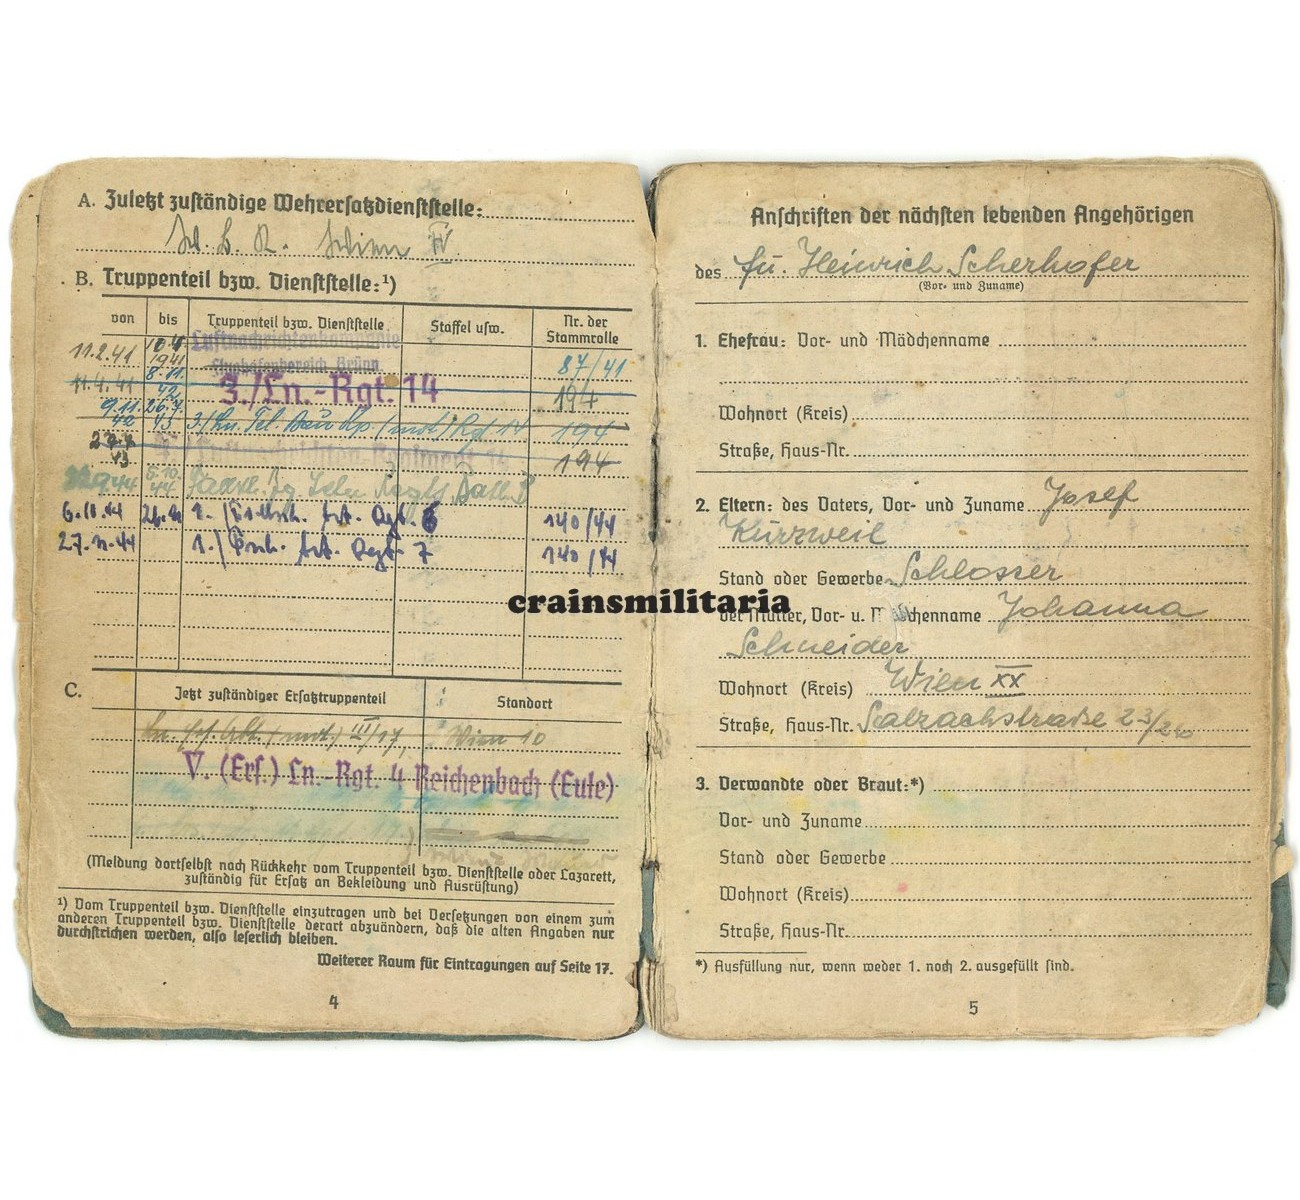 A. Zuletzt zuständige Wehrersatzdienststelle:
W. B. K. Wien IV.
B. Truppenteil bzw. Dienststelle:¹)
von bis Truppenteil bzw. Dienststelle Staffel usw. Nr. der Stammrolle
11.2.41 10.4. 1941 Luftnachrichtenkompanie Flughafenbereich Brünn 87/41
11.4.41 8.11. 42 3./Ln.-Rgt. 14 194
9.11. 42 26.7. 43 3./Ln. Tel. Bau Kp. (mot) Rgt 14 194
43 194
6.10.44 2./ Art. Rgt. 6 140/44
27.11.44 1./ Fsch. Art. Regt. 7 140/44
C. Jetzt zuständiger Ersatztruppenteil Standort
Wien 10
V. (Ers.) Ln.-Rgt. 4 Reichenbach (Eule)
(Meldung dortselbst nach Rückkehr vom Truppenteil bzw. Dienststelle oder Lazarett,
zuständig für Ersatz an Bekleidung und Ausrüstung)
¹) Vom Truppenteil bzw. Dienststelle einzutragen und bei Versetzungen von einem zum
anderen Truppenteil bzw. Dienststelle derart abzuändern, daß die alten Angaben nur
durchstrichen werden, also leserlich bleiben.
Weiterer Raum für Eintragungen auf Seite 17.
4
Anschriften der nächsten lebenden Angehörigen
des Fu. Heinrich Scherhofer
(Vor- und Zuname)
1. Ehefrau: Vor- und Mädchenname
Wohnort (Kreis)
Straße, Haus-Nr.
2. Eltern: des Vaters, Vor- und Zuname Josef
Kurzweil
Stand oder Gewerbe Schlosser
der Mutter, Vor- u. Mädchenname Johanna
Schneider
Wohnort (Kreis) Wien XX
Straße, Haus-Nr. Salzachstraße 23/
3. Verwandte oder Braut:*)
Vor- und Zuname
Stand oder Gewerbe
Wohnort (Kreis)
Straße, Haus-Nr.
*) Ausfüllung nur, wenn weder 1. noch 2. ausgefüllt sind.
5
crainsmilitaria